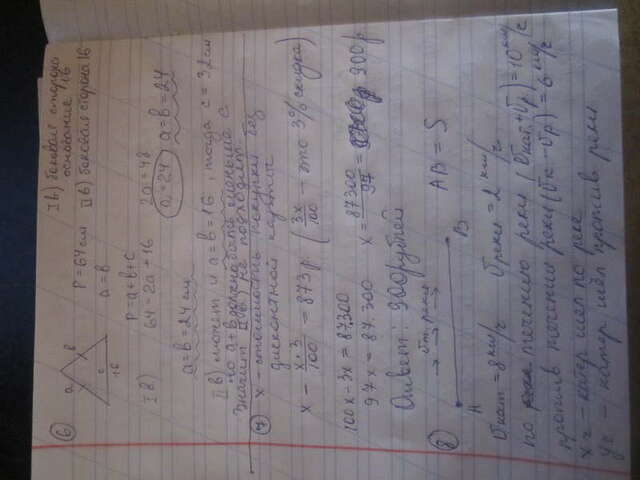 ⑥ a b c 16
P=64см
a=b
I в) боковая сторона
основание 16
II в) боковая сторона 16
I в)
P=a+b+c
64=2a+16
2a=48
a=24
a=b=24
a=b=24 см
II в) может и a=b=16, тогда c=32см
но a+b должно быть больше c
значит II в. не подходит
⑦ x - стоимость покупки без
дисконтной карты
x - x·3/100 = 873р. (3x/100 - это 3% скидка)
100x-3x=87300
97x=87.300
x=87300/97= 900р.
Ответ: 900рублей
⑧ A B
AB=S
Vкат=8км/ч Vреки=2км/ч
по течению реки (Vкат+Vр)=10км/ч
против течения реки (Vк-Vр)=6км/ч
xч - катер шёл по реке
yч - катер шёл против реки